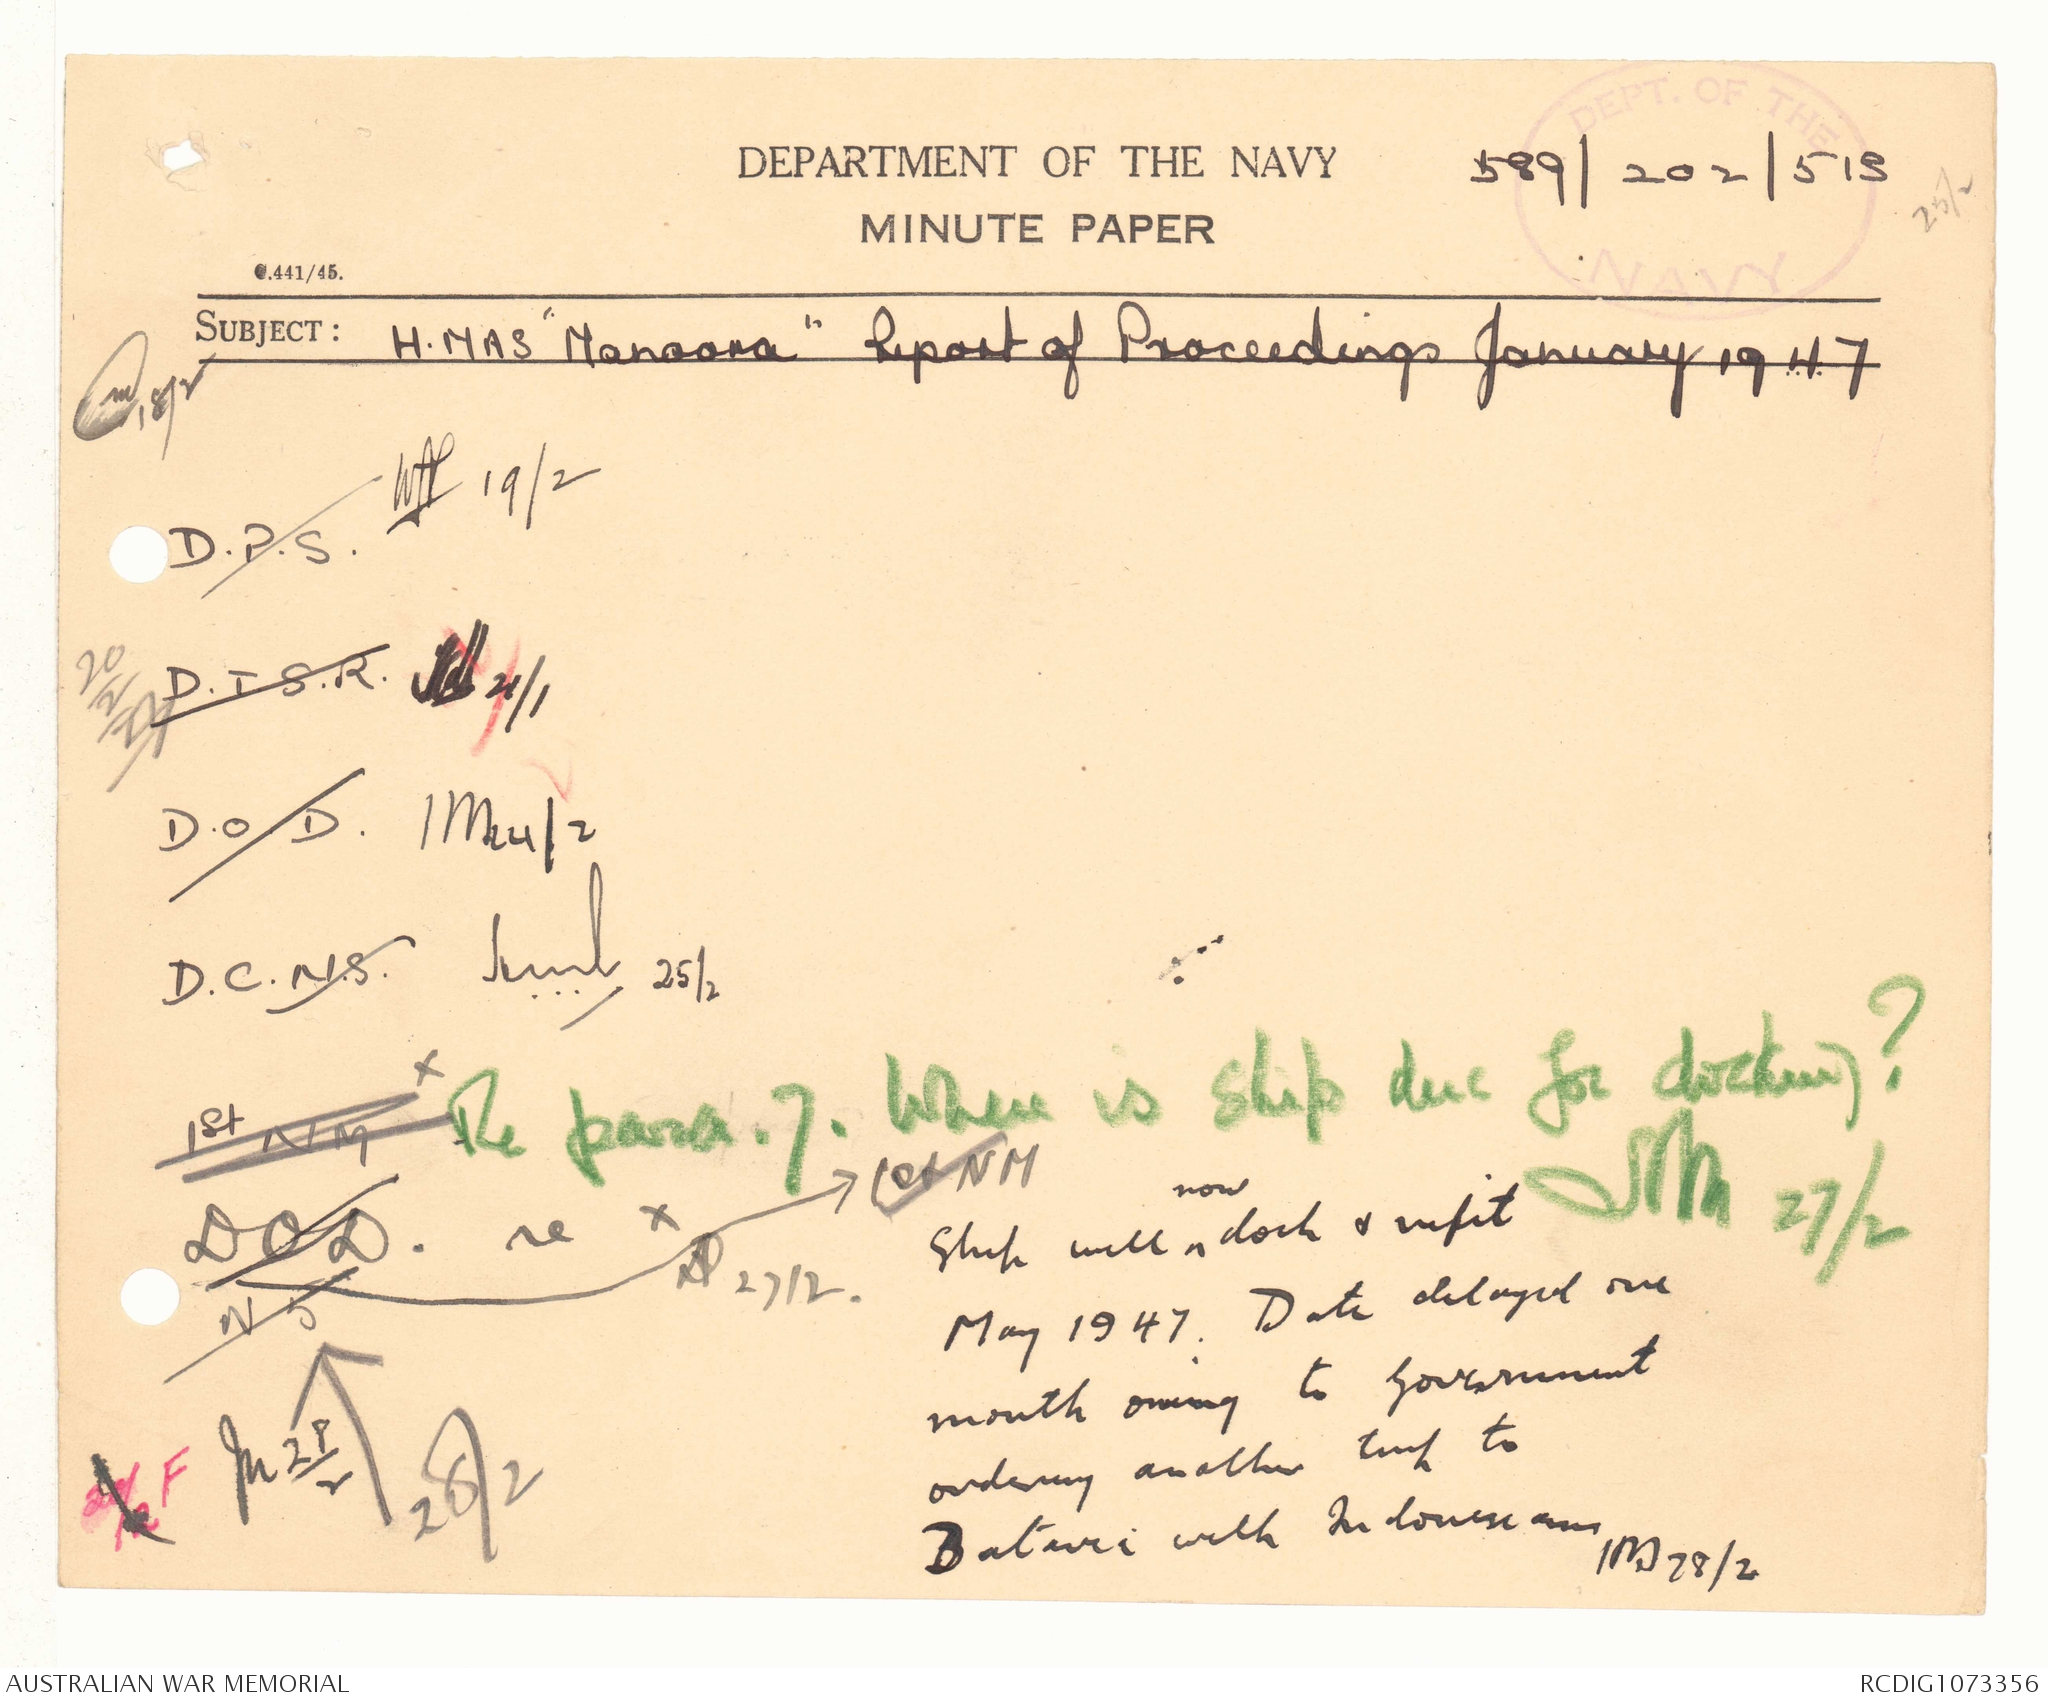 DEPT. OF THE
NAVY
DEPARTMENT OF THE NAVY
589/202/513
25/2
MINUTE PAPER
C.441/45.
SUBJECT: H.MAS "Manoora" Report of Proceedings January 1947
18/2
D.P.S. 19/2
D.T.S.R. 21/1
20/2/47
D.O.D. 24/2
D.C.N.S. 25/2
1st NM x Re para. 7. When is ship due for docking?
27/2
1st NM
DOD. re x 27/2.
NS
Ship will now dock & refit
May 1947. Date delayed one
month owing to Government
ordering another trip to
Batavia with Indonesians
28/2
28/2
28/2
F
AUSTRALIAN WAR MEMORIAL
RCDIG1073356